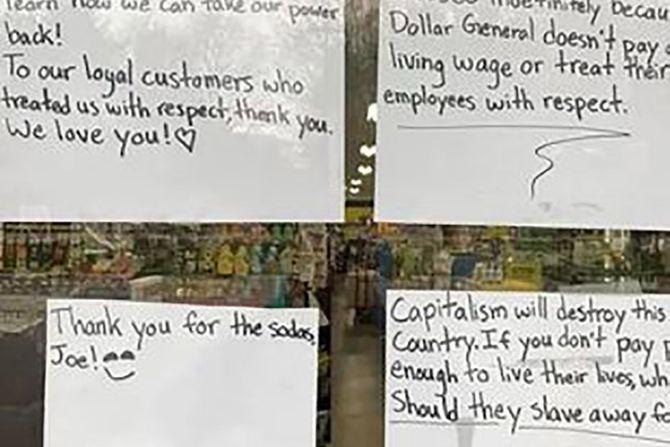 learn how we can take our power
back!
To our loyal customers who
treated us with respect, thank you.
We love you!♡
indefinitely becau
Dollar General doesn't pay
living wage or treat their
employees with respect.
Thank you for the sodas,
Joe!
Capitalism will destroy this
Country. If you don't pay p
enough to live their lives, wh
Should they slave away fo